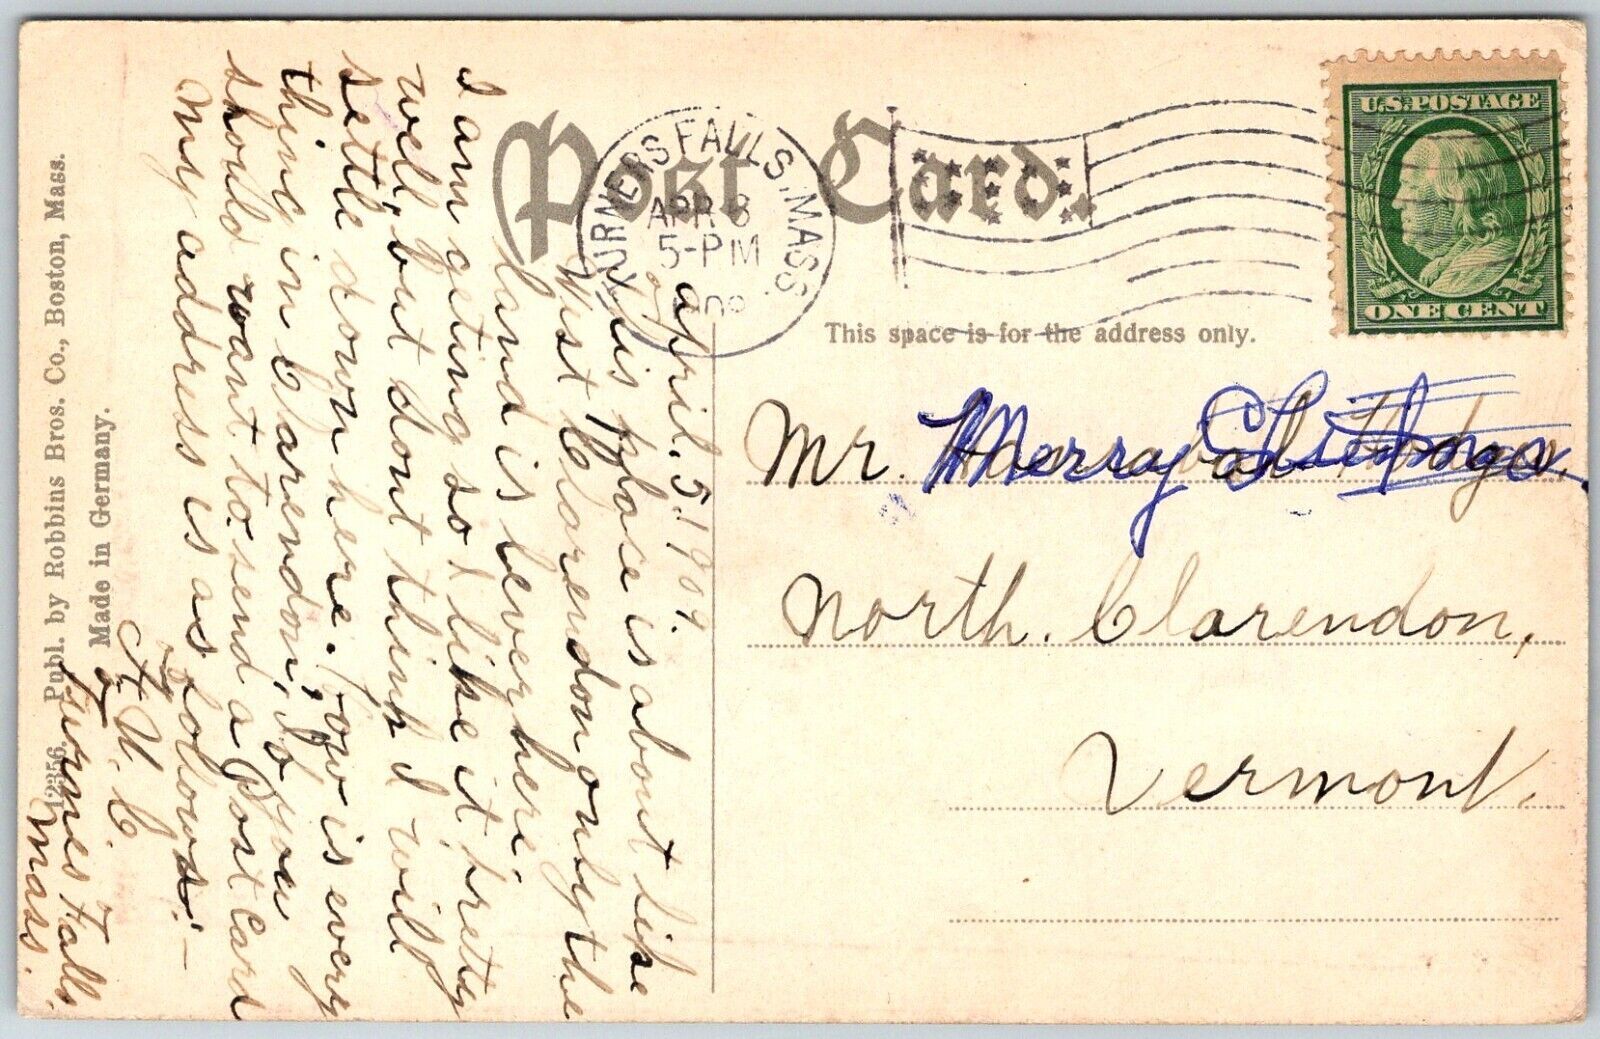 Post Card.
TURNERS FALLS, MASS.
APR 8
5-PM
U.S. POSTAGE
ONE CENT
This space is for the address only.
Mr.
Merry Christmas
North. Clarendon,
Vermont.
april. 5. 1909.
this place is about like
West Clarendon only the
land is lever here.
I am geting so I like it pretty
well, but dont think I will
settle down here. is every
thing in Clarendon, if you
should want to send a Post Card
my address is as folows:-
A. U. C.
Turnes Falls
Mass.
12356. Publ. by Robbins Bros. Co., Boston, Mass.
Made in Germany.